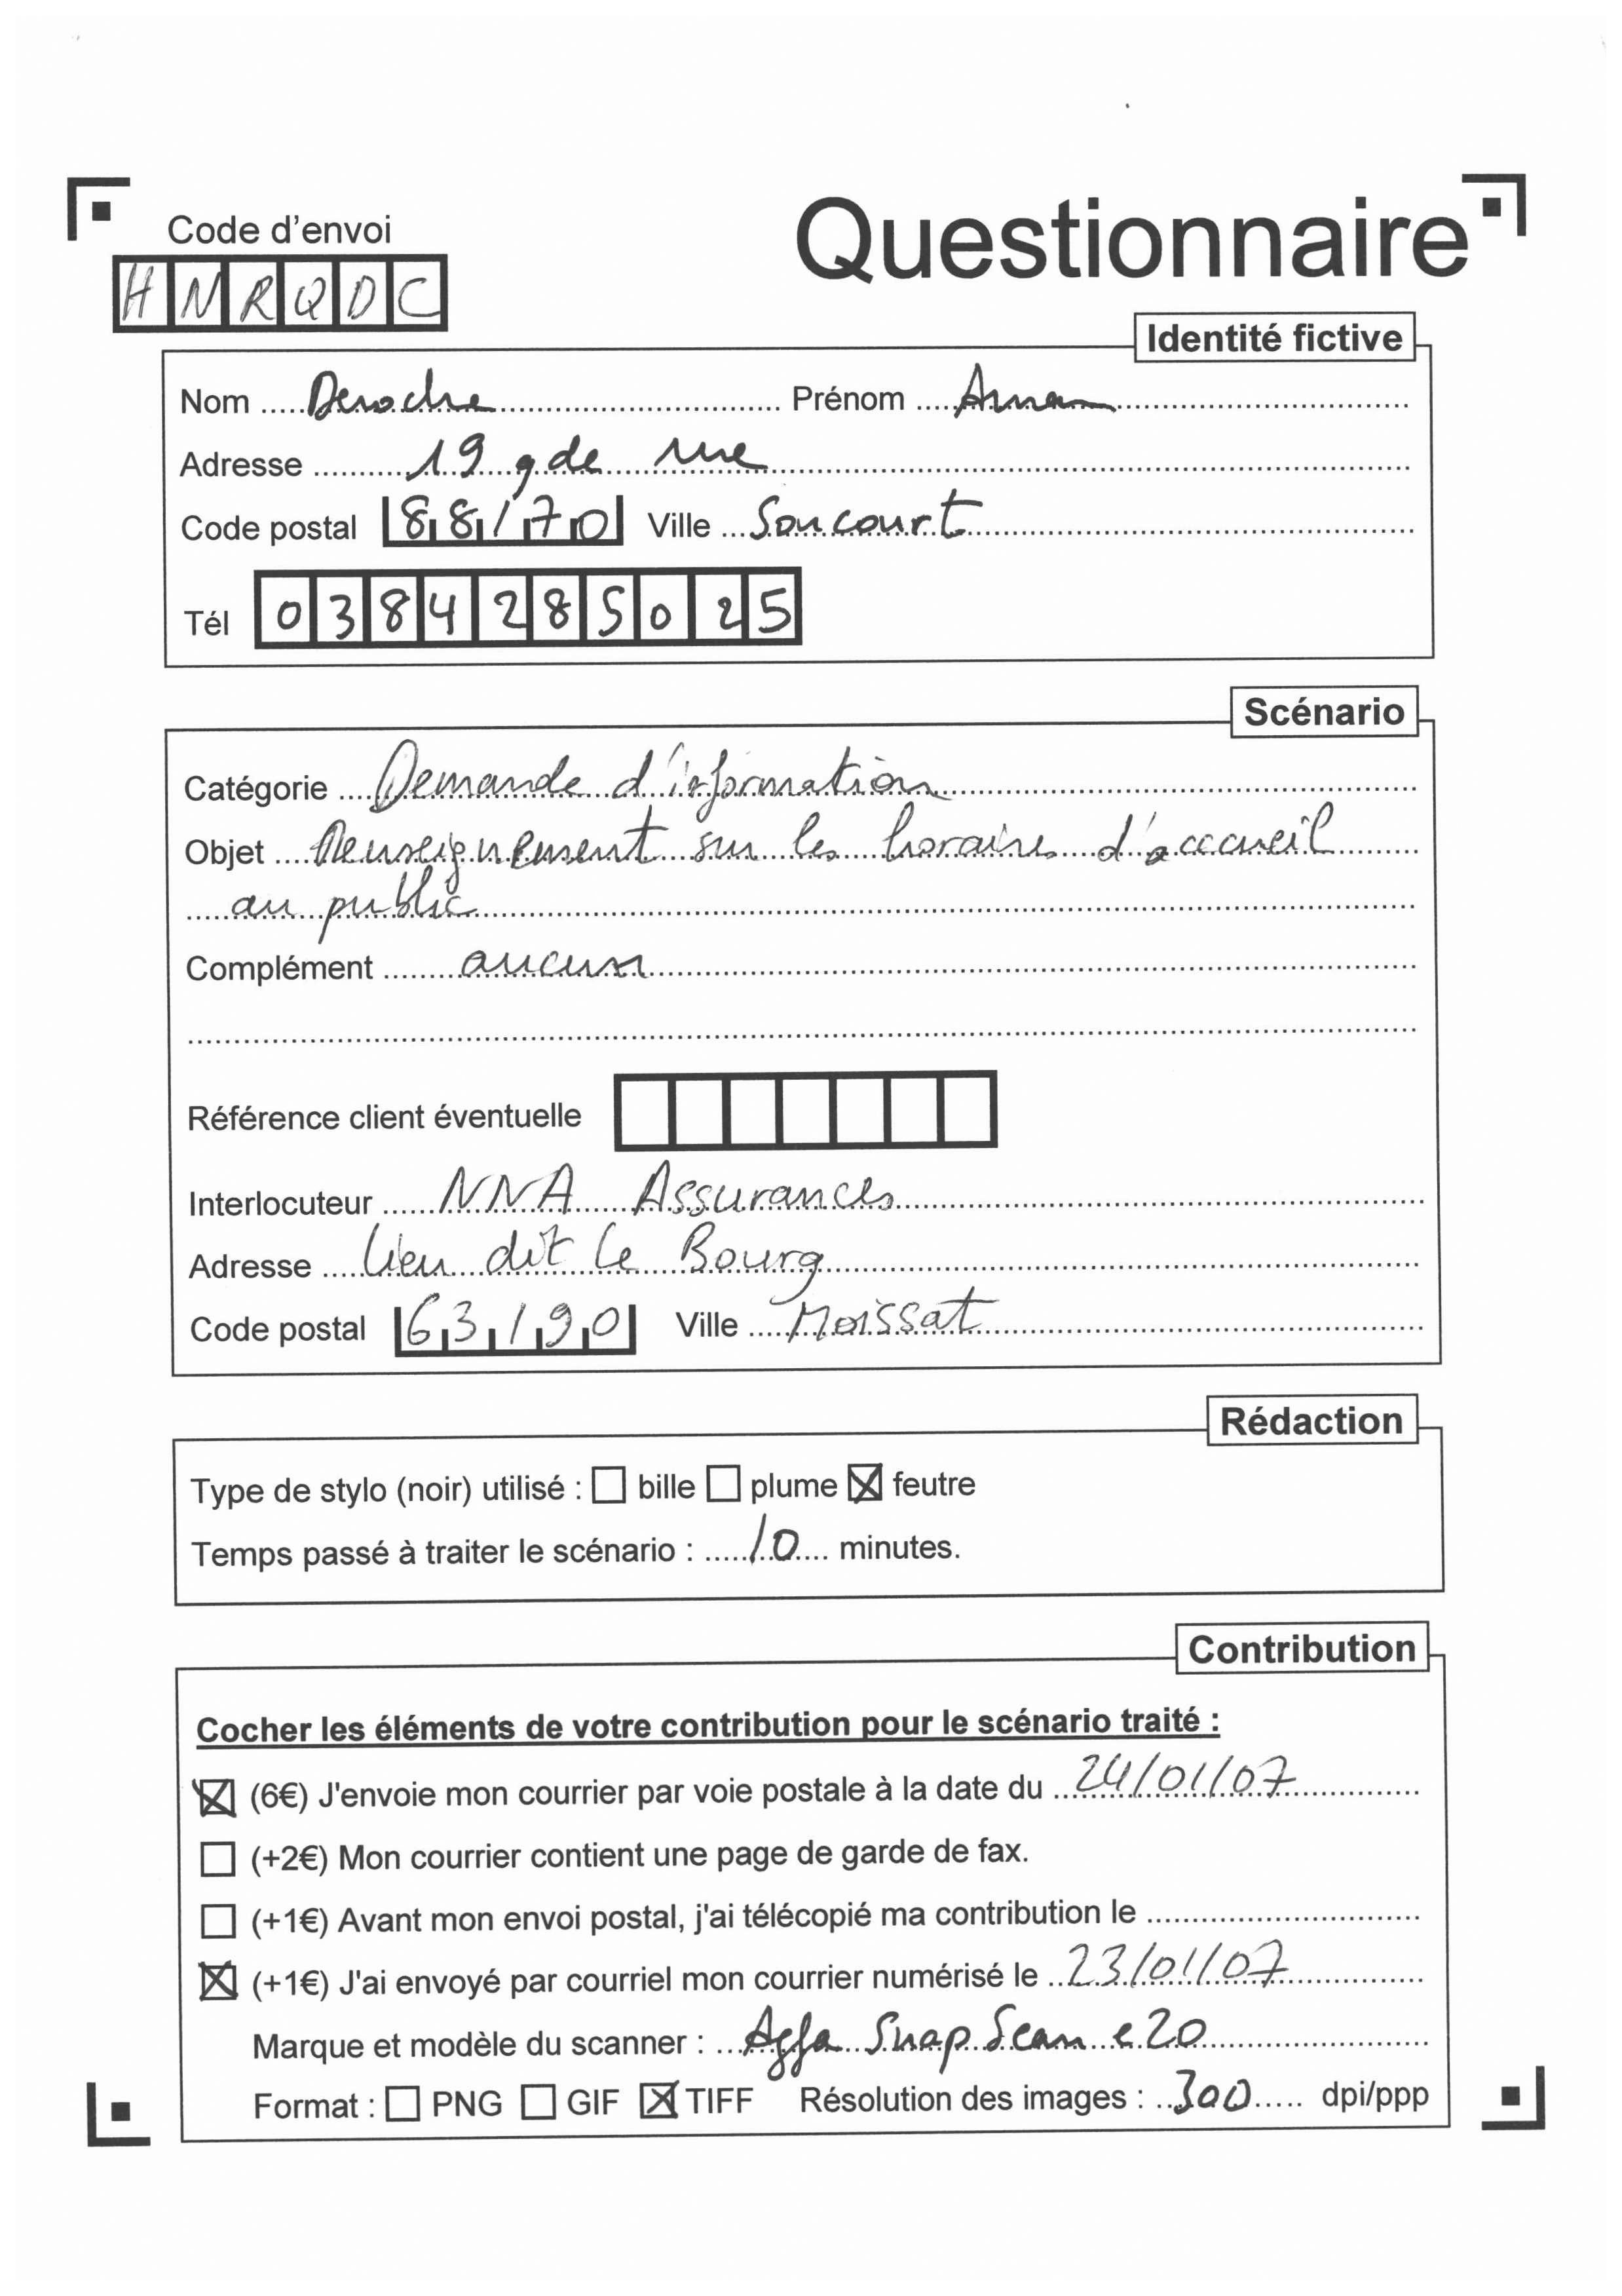 Code d'envoi
Questionnaire
HNRQDC
Identité fictive
Nom Deroche Prénom
Adresse 19 gde rue
Code postal 88170 Ville Soncourt
Tél 0384285025
Scénario
Catégorie Demande d'information
Objet Renseignement sur les horaires d'accueil
au public
Complément aucun
Référence client éventuelle
Interlocuteur NNA Assurances
Adresse Lieu dit le Bourg
Code postal 63190 Ville Moissat
Rédaction
Type de stylo (noir) utilisé : bille plume feutre
Temps passé à traiter le scénario : 10 minutes.
Contribution
Cocher les éléments de votre contribution pour le scénario traité :
(6€) J'envoie mon courrier par voie postale à la date du 24/01/07
(+2€) Mon courrier contient une page de garde de fax.
(+1€) Avant mon envoi postal, j'ai télécopié ma contribution le
(+1€) J'ai envoyé par courriel mon courrier numérisé le 23/01/07
Marque et modèle du scanner : Agfa SnapScan e20
Format : PNG GIF TIFF Résolution des images : 300 dpi/ppp